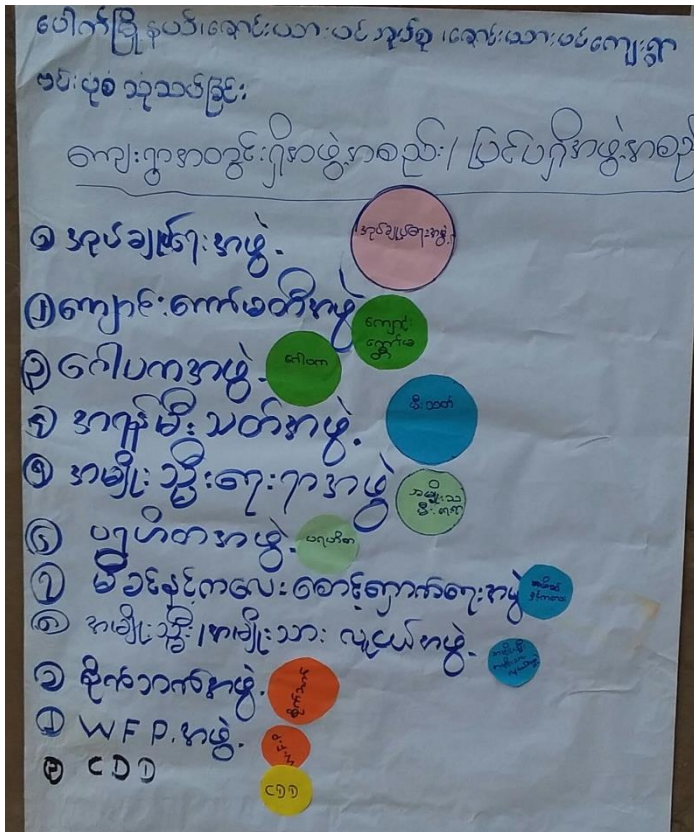 ပေါက်မြို့နယ်၊ချောင်းယားပင်အုပ်စု၊ချောင်းယားပင်ကျေးရွာ
ဗင်းပုံစံသုံးသပ်ခြင်း
ကျေးရွာအတွင်းရှိအဖွဲ့အစည်း/ပြင်ပရှိအဖွဲ့အစည်
၁ အုပ်ချုပ်ရေးအဖွဲ့.
အုပ်ချုပ်ရေးအဖွဲ့
၂ ကျောင်းကော်မတီအဖွဲ့
ကျောင်း
ကော်မ
၃ ဂေါပကအဖွဲ့.
ဂေါပက
၄ အရန်မီးသတ်အဖွဲ့.
မီးသတ်
၅ အမျိုးသ္မီးရေးရာအဖွဲ့
အမျိုးသ
မီးရေးရာ
၆ ပရဟိတအဖွဲ့.
ပရဟိတ
၇ မိခင်နှင့်ကလေးစောင့်ရှောက်ရေးအဖွဲ့
၈ အမျိုးသ္မီး/အမျိုးသား လူငယ်အဖွဲ့.
၁ စိုက်ဘက်အဖွဲ့.
၂ WFP.အဖွဲ့.
W.F.P
၃ CDD
CDD